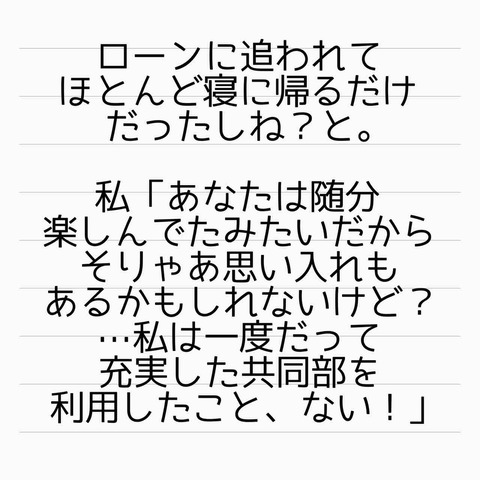 ローンに追われて
ほとんど寝に帰るだけ
だったしね？と。
私「あなたは随分
楽しんでたみたいだから
そりゃあ思い入れも
あるかもしれないけど？
…私は一度だって
充実した共同部を
利用したこと、ない！」